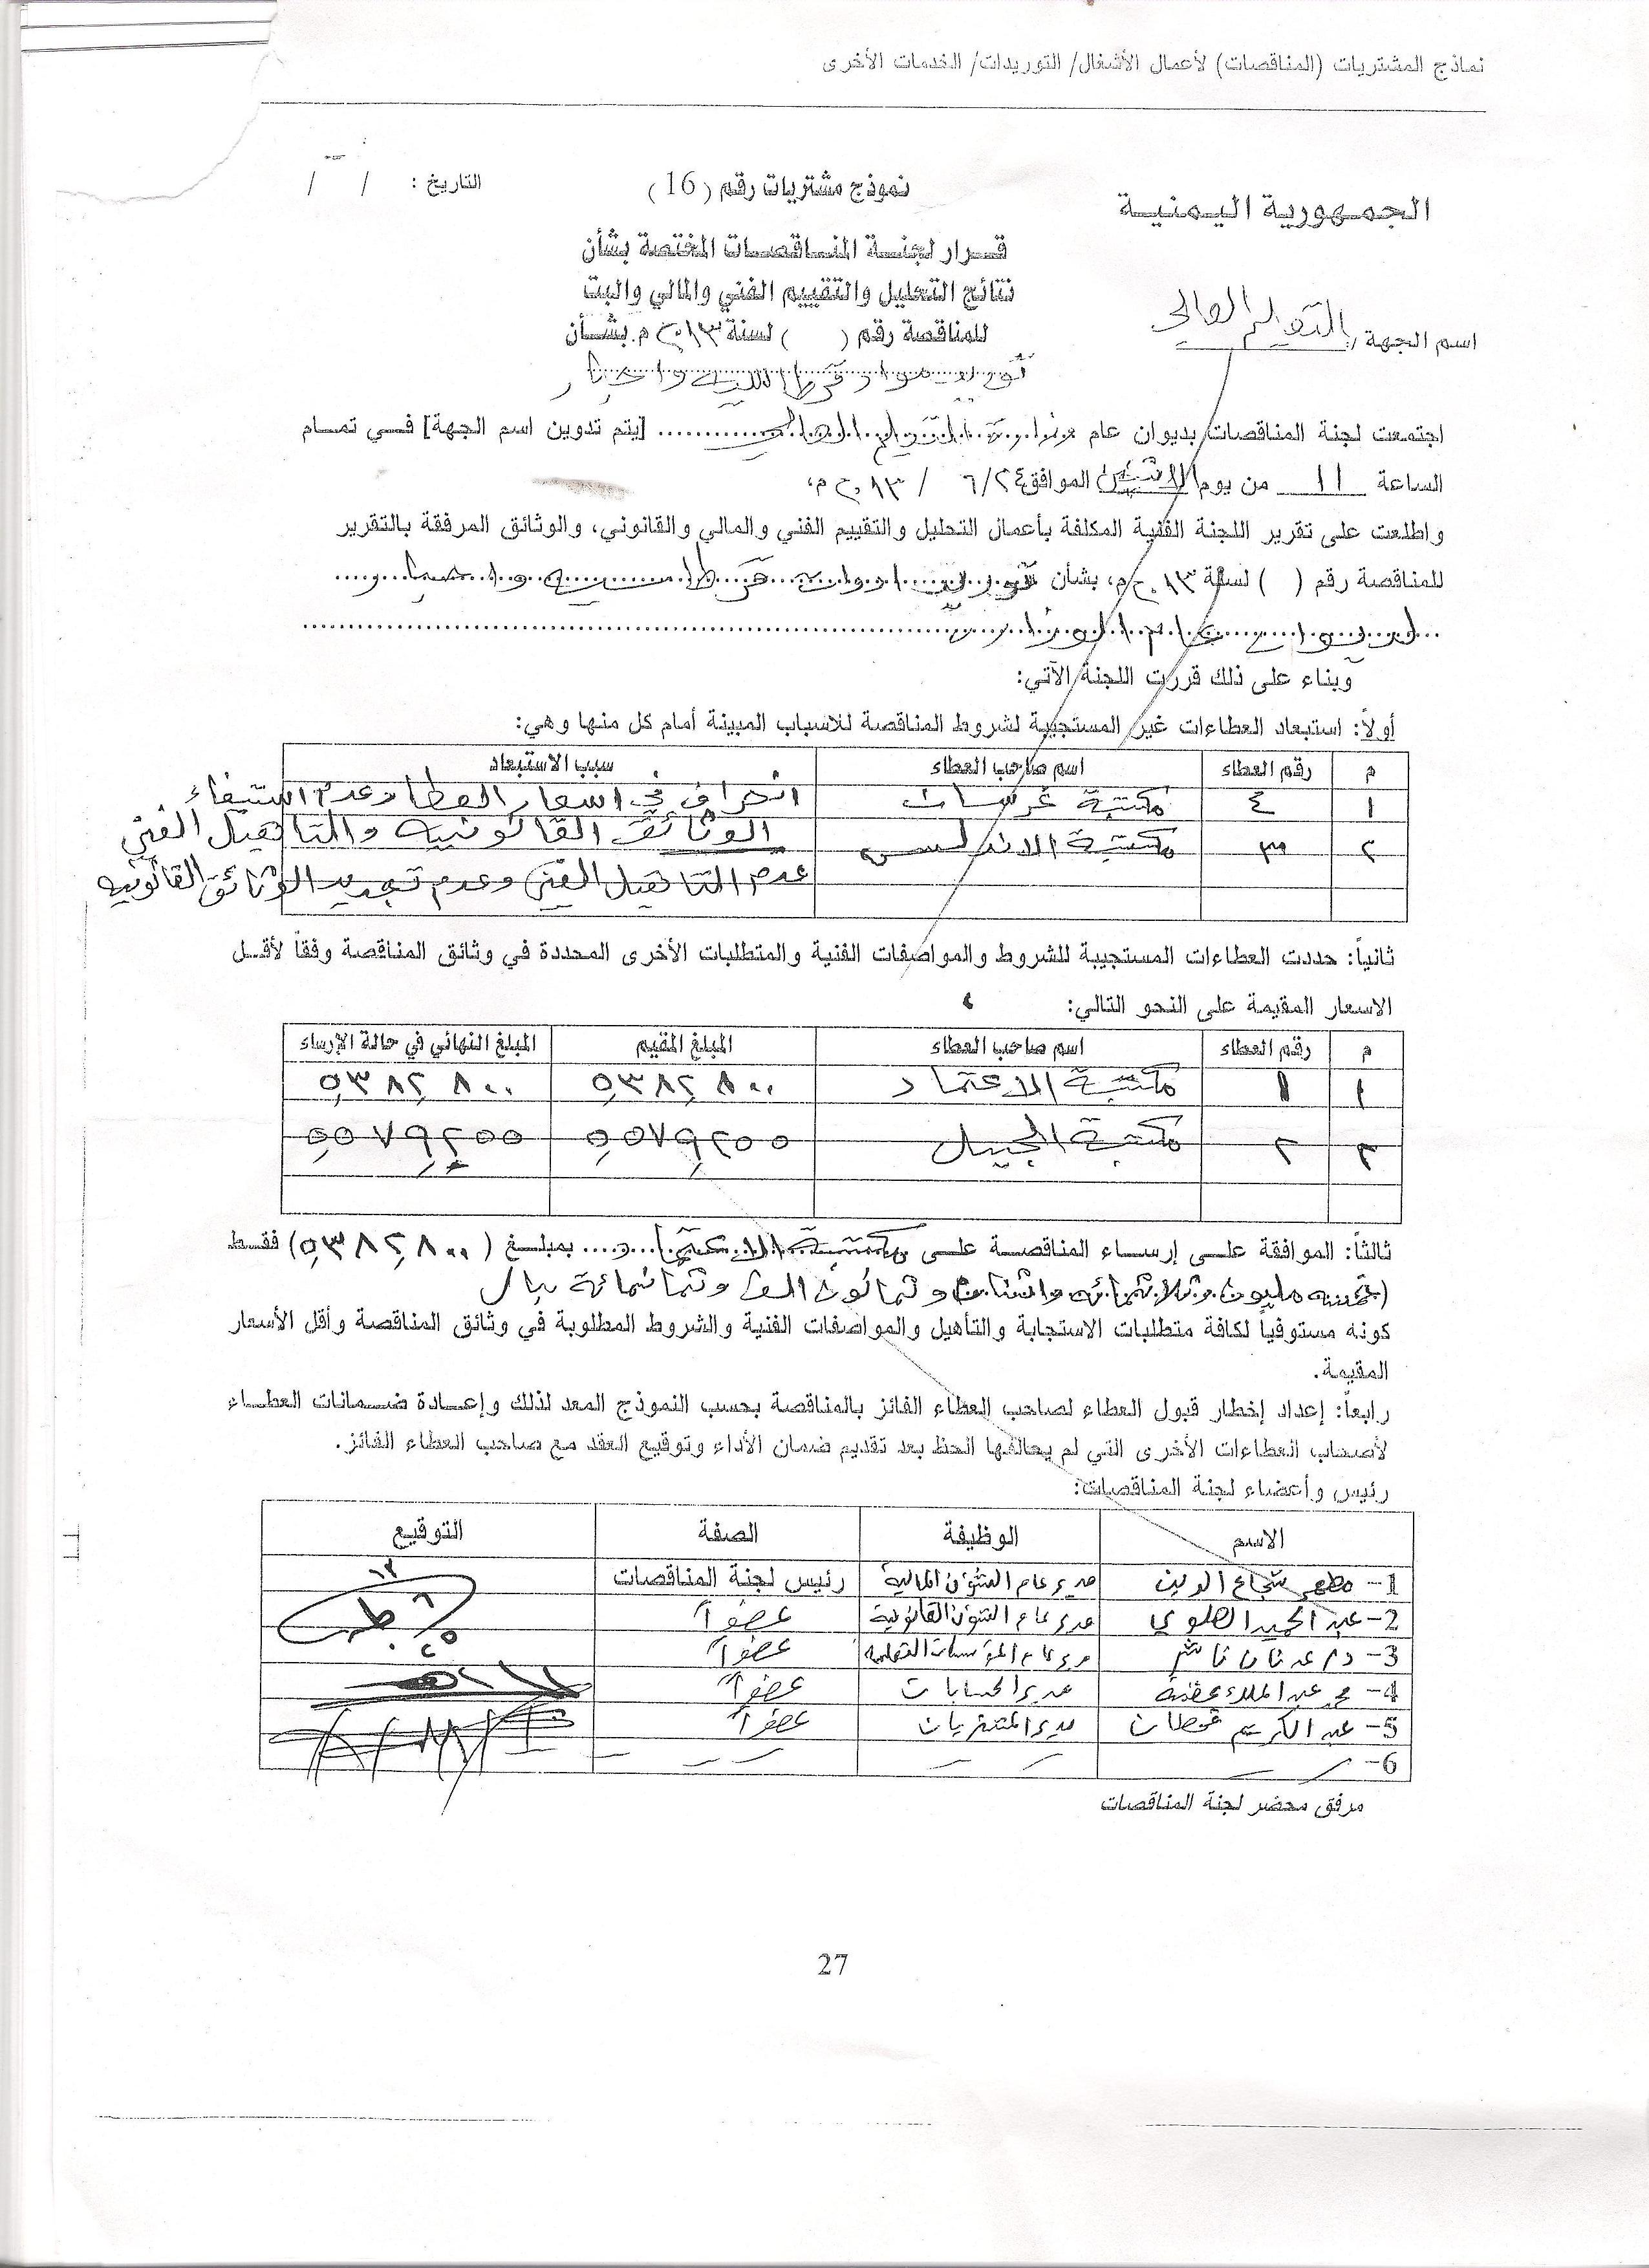 نماذج المشتريات (المناقصات) لأعمال الأشغال/ التوريدات/ الخدمات الأخرى
الجمهورية اليمنية
نموذج مشتريات رقم (16)
التاريخ : / /
قرار لجنة المناقصات المختصة بشأن
نتائج التحليل والتقييم الفني والمالي والبت
اسم الجهة/ التعليم العالي
للمناقصة رقم ( ) لسنة ٢٠١٣م. بشأن
توريد مواد قرطاسية واحبار
اجتمعت لجنة المناقصات بديوان عام وزارة التعليم العالي [يتم تدوين اسم الجهة] في تمام
الساعة ١١ من يوم الاثنين الموافق ٢٤/ ٦ / ٢٠١٣م،
واطلعت على تقرير اللجنة الفنية المكلفة بأعمال التحليل والتقييم الفني والمالي والقانوني، والوثائق المرفقة بالتقرير
للمناقصة رقم ( ) لسنة ٢٠١٣م، بشأن توريد ادوات قرطاسيه واحبار
لديوان عام الوزارة
وبناء على ذلك قررت اللجنة الآتي:
أولاً: استبعاد العطاءات غير المستجيبة لشروط المناقصة للاسباب المبينة أمام كل منها وهي:
م رقم العطاء اسم صاحب العطاء سبب الاستبعاد
١ ٤ مكتبة انحراف في اسعار العطاء وعدم استيفاء
الوثائق القانونيه والتاهيل الفني
٢ ٣ مكتبة الاندلس عدم التاهيل الفني وعدم تجديد الوثائق القانونيه
ثانياً: حددت العطاءات المستجيبة للشروط والمواصفات الفنية والمتطلبات الأخرى المحددة في وثائق المناقصة وفقاً لأقل
الاسعار المقيمة على النحو التالي:
م رقم العطاء اسم صاحب العطاء المبلغ المقيم المبلغ النهائي في حالة الإرساء
١ ١ مكتبة الاعتماد ٥٣٨٢٨٠٠ ٥٣٨٢٨٠٠
٢ ٢ مكتبة الجيل ٥٥٧٩٢٥٥ ٥٥٧٩٢٥٥
ثالثاً: الموافقة على إرساء المناقصة على مكتبة الاعتماد بمبلغ (٥٣٨٢٨٠٠) فقط
(خمسه مليون وثلاثمائه واثنان وثمانون الف وثمانمائة ريال
كونه مستوفياً لكافة متطلبات الاستجابة والتأهيل والمواصفات الفنية والشروط المطلوبة في وثائق المناقصة وأقل الأسعار
المقيمة.
رابعاً: إعداد إخطار قبول العطاء لصاحب العطاء الفائز بالمناقصة بحسب النموذج المعد لذلك وإعادة ضمانات العطاء
لأصحاب العطاءات الأخرى التي لم يحالفها الحظ بعد تقديم ضمان الأداء وتوقيع العقد مع صاحب العطاء الفائز.
رئيس وأعضاء لجنة المناقصات:
الاسم الوظيفة الصفة التوقيع
1- مطهر شجاع الدين مدير عام الشؤون المالية رئيس لجنة المناقصات
2- عبد الحميد الصلوي مدير عام الشؤون القانونية عضواً
3- د/ عدنان ناشر مدير عام المؤسسات التعليمية عضواً
4- محمد عبد الملك مدير الحسابات عضواً
5- عبد الكريم قحطان مدير المشتريات عضواً
6-
مرفق محضر لجنة المناقصات
27